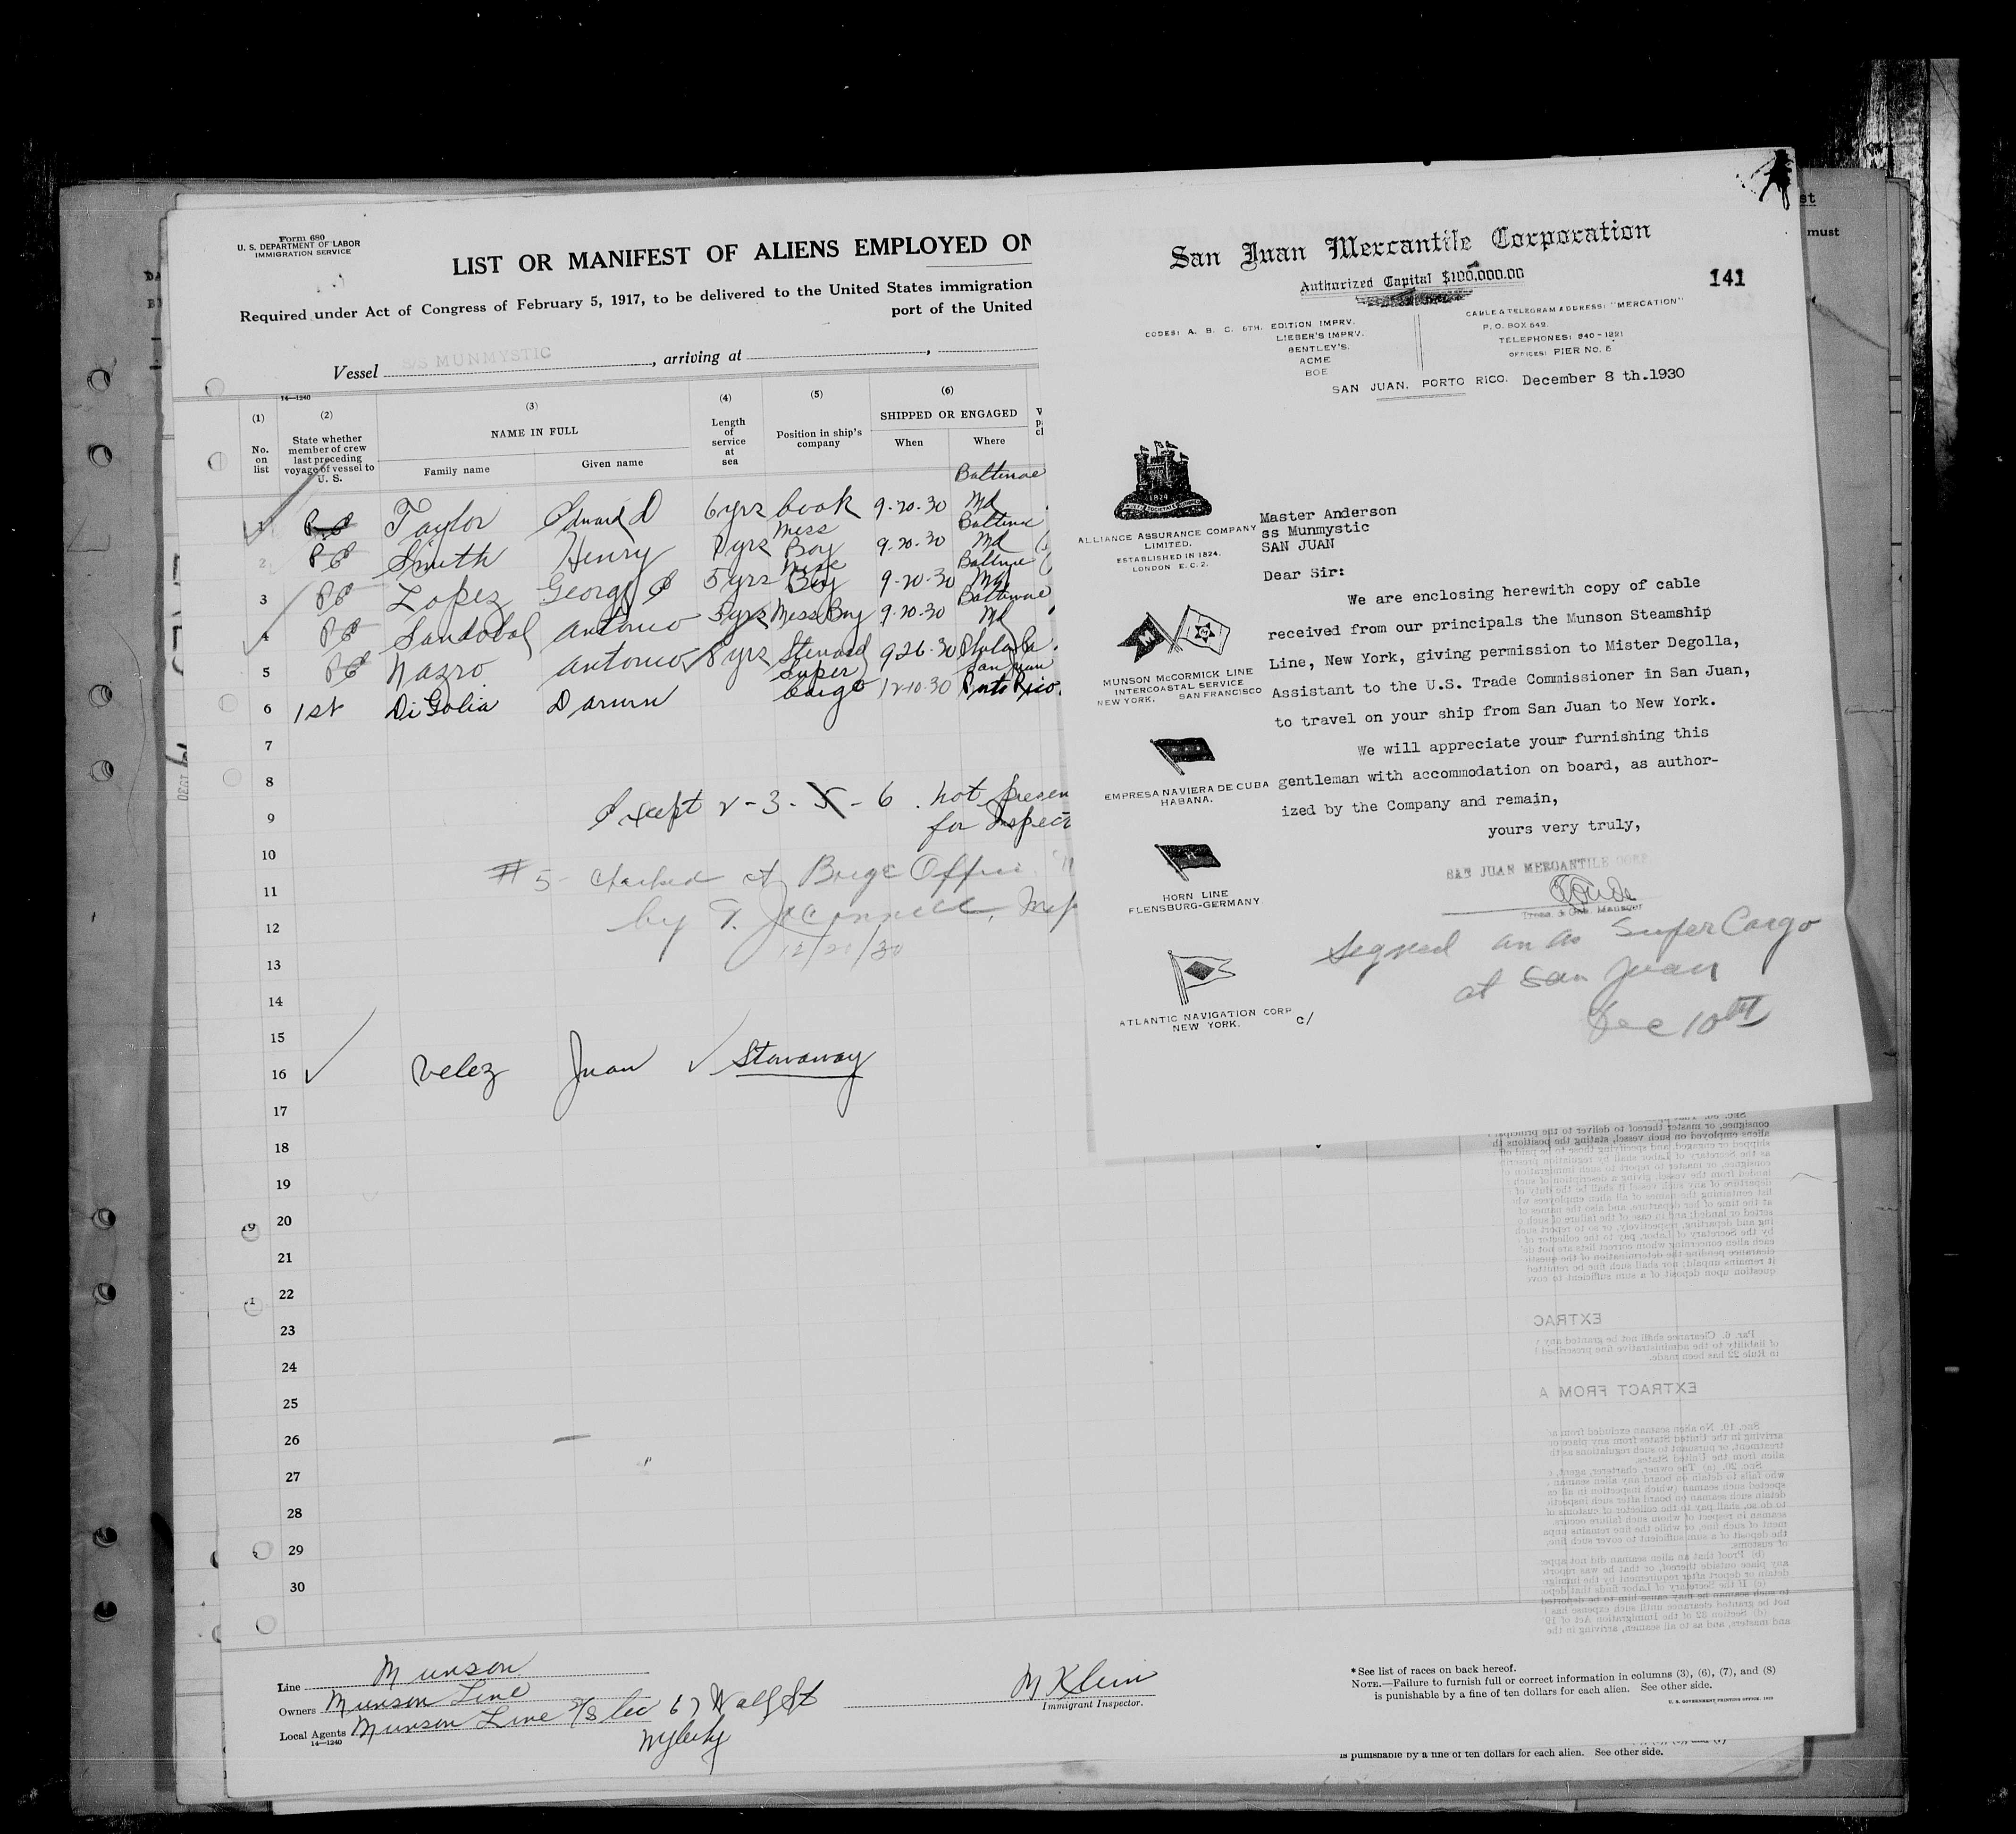 Form 680
U. S. DEPARTMENT OF LABOR
IMMIGRATION SERVICE
LIST OR MANIFEST OF ALIENS EMPLOYED ON
Required under Act of Congress of February 5, 1917, to be delivered to the United States immigration
port of the United
Vessel S/S MUNMYSTIC, arriving at
14—1240
(1) (2) (3) (4) (5) (6)
No. on list
State whether member of crew last preceding voyage of vessel to U. S.
NAME IN FULL
Family name Given name
Length of service at sea
Position in ship's company
SHIPPED OR ENGAGED
When Where
1 Taylor Edward D 6 yrs Cook 9-20-30 Baltimore Md
2 Smith Henry 8 yrs Mess Boy 9-20-30 Baltimore Md
3 Lopez George 5 yrs Mess Boy 9-20-30 Baltimore Md
4 Sandoval Antonio 5 yrs Mess Boy 9-20-30 Baltimore Md
5 Nazro Antonio 8 yrs Steward 9 26-30 Philada Pa
6 1st DiGolia Darwin Super Cargo 12-10-30 San Juan Porto Rico
7
8
Except 2-3-5-6. not presen
9
for Inspect
10
#5 - checked at Barge Office
11
by T. J. O'Connell, Insp
12
12/20/30
13
14
15
16 Velez Juan Stowaway
17
18
19
20
21
22
23
24
25
26
27
28
29
30
Line Munson
Owners Munson Line
Local Agents Munson Line S/S Co 67 Wall St
14—1240
NY City
M Klein
Immigrant Inspector.
* See list of races on back hereof.
NOTE.—Failure to furnish full or correct information in columns (3), (6), (7), and (8)
is punishable by a fine of ten dollars for each alien. See other side.
U. S. GOVERNMENT PRINTING OFFICE
is punishable by a fine of ten dollars for each alien. See other side.
must
San Juan Mercantile Corporation
Authorized Capital $100,000.00
141
CODES: A. B. C. 5TH. EDITION IMPRV.
LIEBER'S IMPRV.
BENTLEY'S.
ACME
BOE
CABLE & TELEGRAM ADDRESS: "MERCATION"
P. O. BOX 642.
TELEPHONES: 840 - 1221
OFFICES: PIER No. 5
SAN JUAN, PORTO RICO. December 8 th.1930
1824
ALLIANCE ASSURANCE COMPANY
LIMITED.
ESTABLISHED IN 1824.
LONDON E.C.2.
MUNSON McCORMICK LINE
INTERCOASTAL SERVICE
NEW YORK. SAN FRANCISCO
EMPRESA NAVIERA DE CUBA
HABANA.
HORN LINE
FLENSBURG-GERMANY.
ATLANTIC NAVIGATION CORP
NEW YORK.
Master Anderson
ss Munmystic
SAN JUAN
Dear Sir:
We are enclosing herewith copy of cable
received from our principals the Munson Steamship
Line, New York, giving permission to Mister Degolla,
Assistant to the U.S. Trade Commissioner in San Juan,
to travel on your ship from San Juan to New York.
We will appreciate your furnishing this
gentleman with accommodation on board, as author-
ized by the Company and remain,
yours very truly,
SAN JUAN MERCANTILE CORP
Treas. & Gen. Manager
c/
Signed on as Super Cargo
at San Juan
Dec 10th
EXTRAC
EXTRACT FROM A